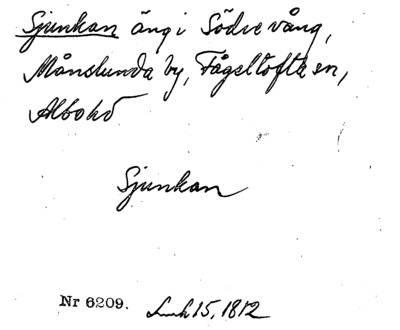 Sjunkan äng i Södre vång,
Månslunda by, Fågeltofta sn,
Albo hd
Sjunkan
Nr 6209. 15, 1812